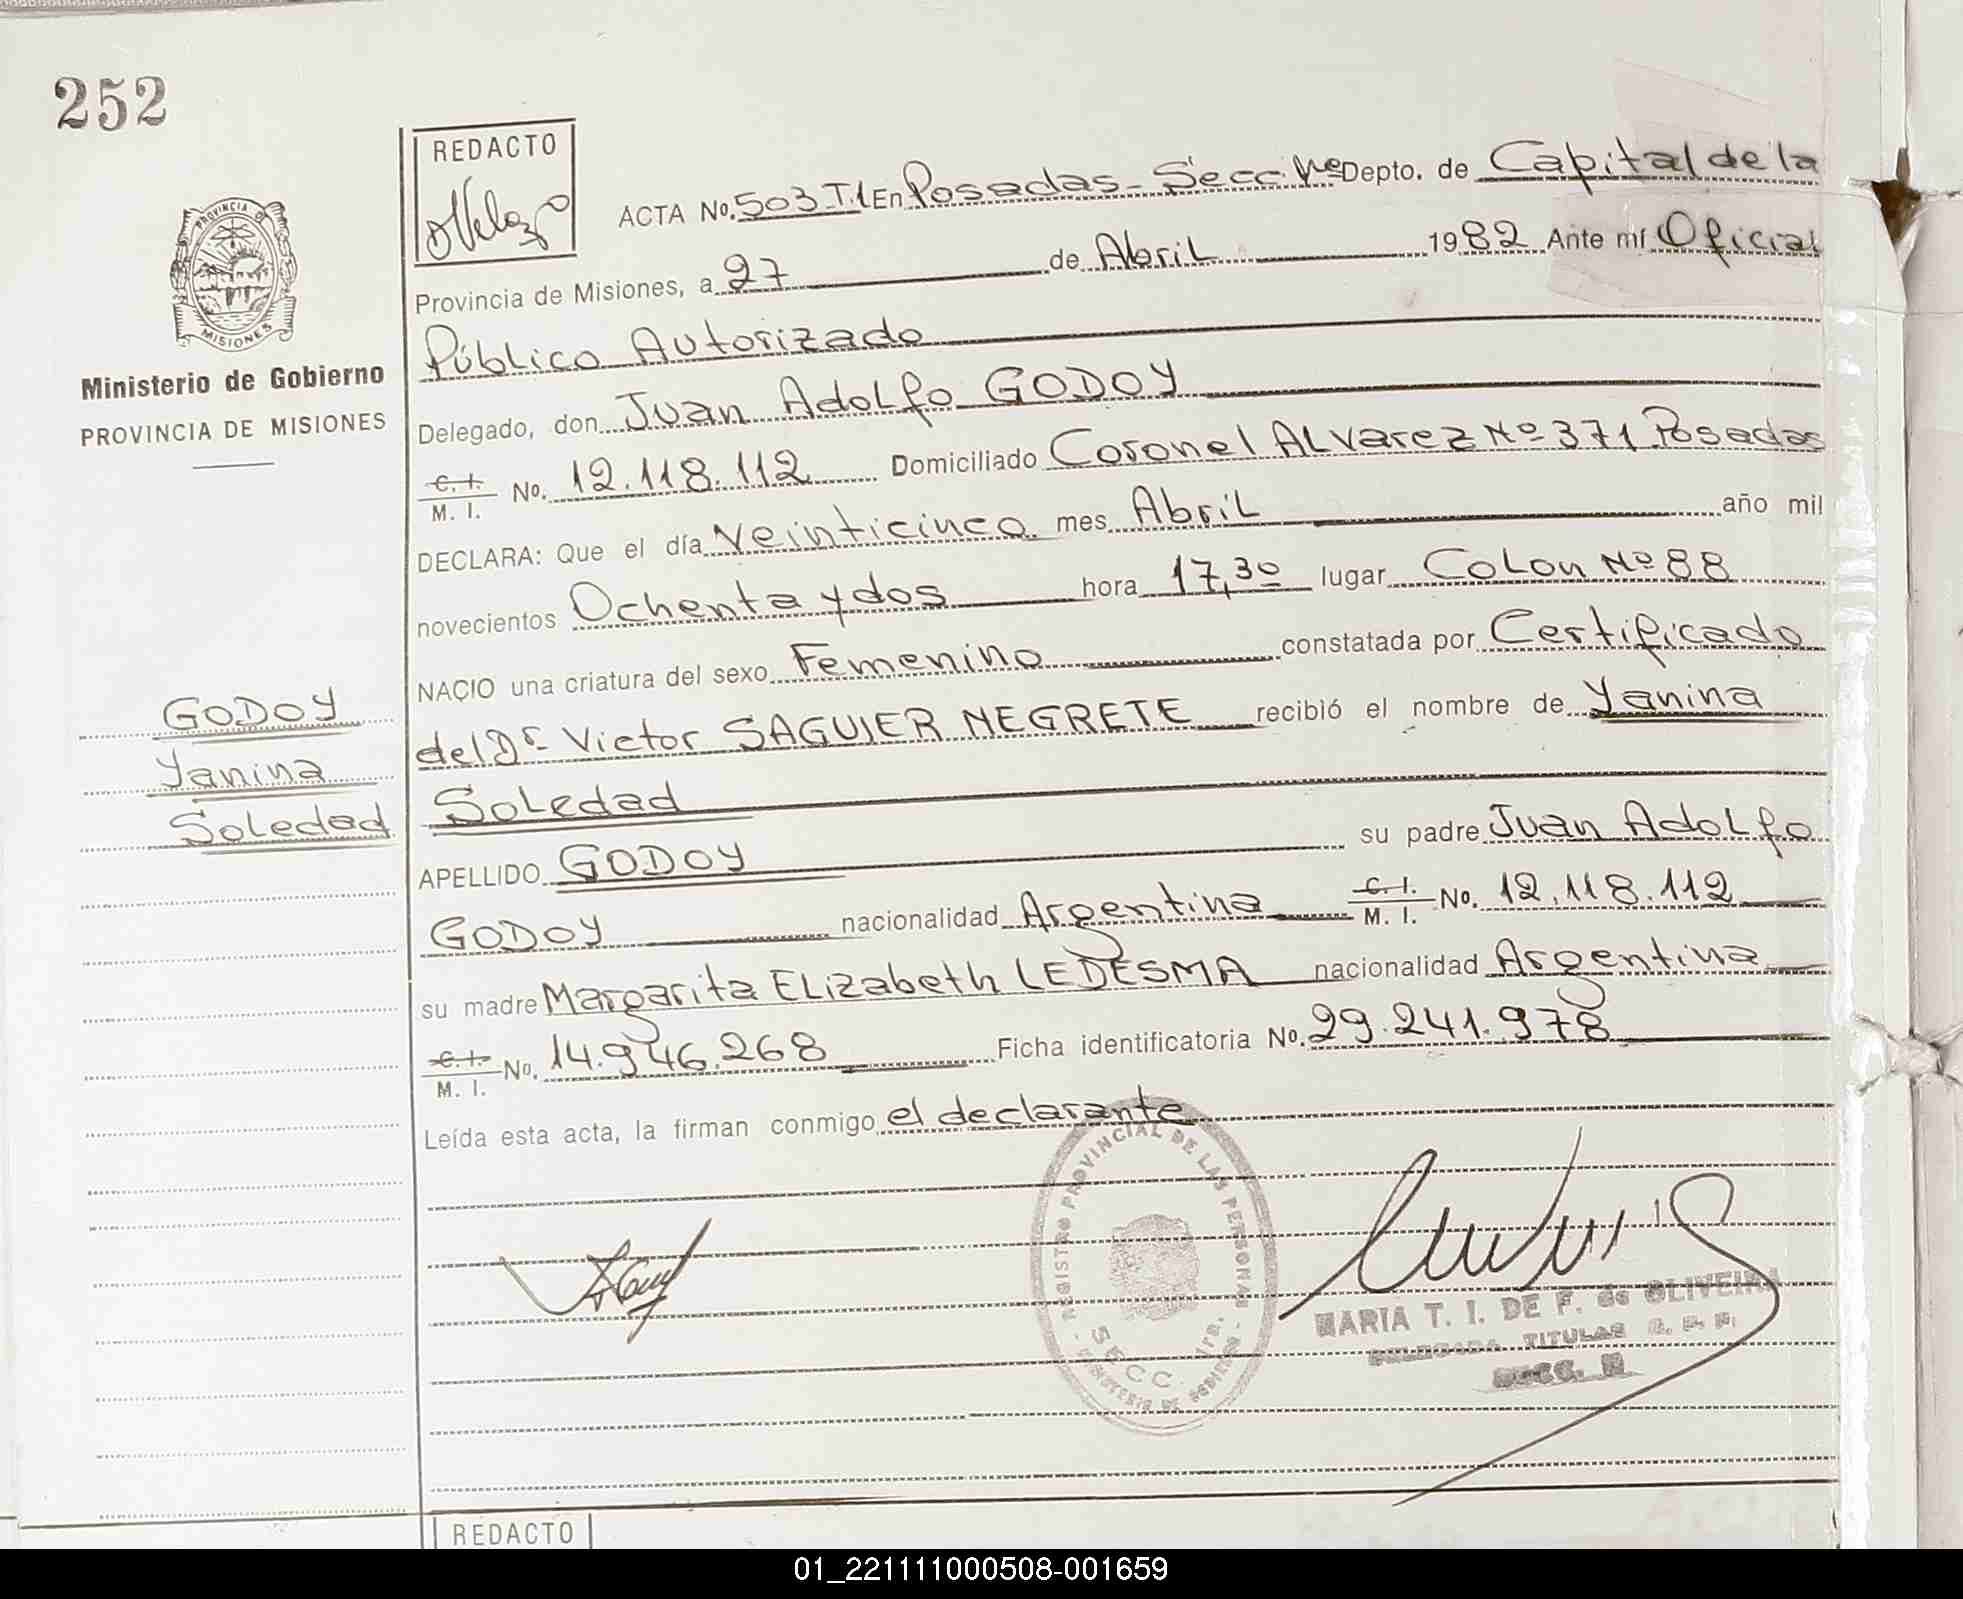 252
REDACTO
ACTA No. 503 T.1 En Posadas - Secc. 1ra Depto. de Capital de la
Provincia de Misiones, a 27 de Abril 1982 Ante mí Oficial
Público Autorizado
Delegado, don Juan Adolfo GODOY
C. I. M. I. No. 12.118.112 Domiciliado Coronel ALvarez Nº 371 Posadas
DECLARA: Que el día veinticinco mes Abril año mil
novecientos Ochenta y dos hora 17,30 lugar Colon Nº 88
NACIO una criatura del sexo Femenino constatada por Certificado
del Dr Victor SAGUIER NEGRETE recibió el nombre de Yanina
Soledad
APELLIDO GODOY su padre Juan Adolfo
GODOY nacionalidad Argentina C. I. M. I. No. 12.118.112
su madre Margarita ELizabeth LEDESMA nacionalidad Argentina
C. I. M. I. No. 14.946.268 Ficha identificatoria No. 29.241.978
Leída esta acta, la firman conmigo el declarante
PROVINCIA D MISIONES
Ministerio de Gobierno
PROVINCIA DE MISIONES
GODOY
Yanina
Soledad
REGISTRO PROVINCIAL DE LAS PERSONAS
SECC. 1ra.
MARIA T. I. DE F. de OLIVEIRA
DELEGADA TITULAR
REDACTO
01_221111000508-001659